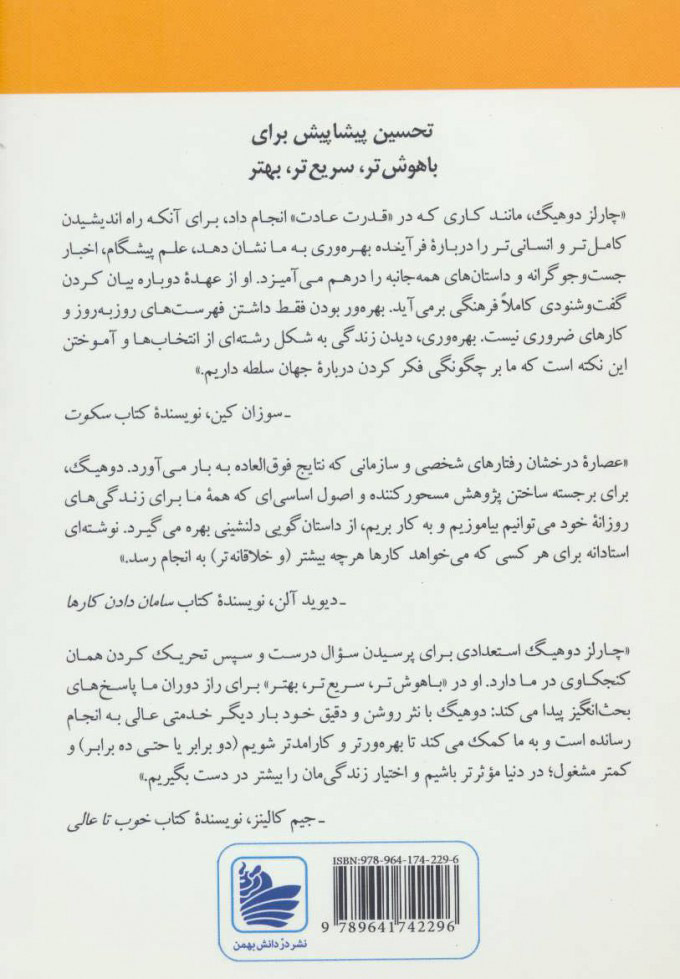 تحسین پیشاپیش برای
باهوش‌تر، سریع‌تر، بهتر
«چارلز دوهیگ، مانند کاری که در «قدرت عادت» انجام داد، برای آنکه راه اندیشیدن
کامل‌تر و انسانی‌تر را دربارهٔ فرآینده بهره‌وری به ما نشان دهد، علم پیشگام، اخبار
جست‌وجوگرانه و داستان‌های همه‌جانبه را درهم می‌آمیزد. او از عهدهٔ دوباره بیان کردن
گفت‌وشنودی کاملاً فرهنگی برمی‌آید. بهره‌ور بودن فقط داشتن فهرست‌های روزبه‌روز و
کارهای ضروری نیست. بهره‌وری، دیدن زندگی به شکل رشته‌ای از انتخاب‌ها و آموختن
این نکته است که ما بر چگونگی فکر کردن دربارهٔ جهان سلطه داریم.»
ـ سوزان کین، نویسندهٔ کتاب سکوت
«عصارهٔ درخشان رفتارهای شخصی و سازمانی که نتایج فوق‌العاده به بار می‌آورد. دوهیگ،
برای برجسته ساختن پژوهش مسحورکننده و اصول اساسی‌ای که همهٔ ما برای زندگی‌های
روزانهٔ خود می‌توانیم بیاموزیم و به کار بریم، از داستان‌گویی دلنشینی بهره می‌گیرد. نوشته‌ای
استادانه برای هر کسی که می‌خواهد کارها هرچه بیشتر (و خلاقانه‌تر) به انجام رسد.»
ـ دیوید آلن، نویسندهٔ کتاب سامان دادن کارها
«چارلز دوهیگ استعدادی برای پرسیدن سؤال درست و سپس تحریک کردن همان
کنجکاوی در ما دارد. او در «باهوش‌تر، سریع‌تر، بهتر» برای راز دوران ما پاسخ‌های
بحث‌انگیز پیدا می‌کند: دوهیگ با نثر روشن و دقیق خود بار دیگر خدمتی عالی به انجام
رسانده است و به ما کمک می‌کند تا بهره‌ورتر و کارامدتر شویم (دو برابر یا حتی ده برابر) و
کمتر مشغول؛ در دنیا مؤثرتر باشیم و اختیار زندگی‌مان را بیشتر در دست بگیریم.»
ـ جیم کالینز، نویسندهٔ کتاب خوب تا عالی
ISBN:978-964-174-229-6
9 789641 742296
نشر دُرّ دانش بهمن